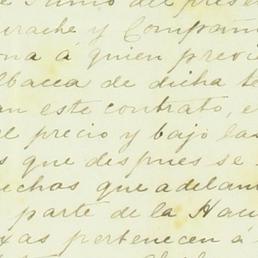 Junio del prese
urache y Compañi
ona á quien previ
lbacea de dicha te
an este contrato, e
el precio y bajo las
s que despues se
echos que adelan
parte de la Hac
xas pertenecen á